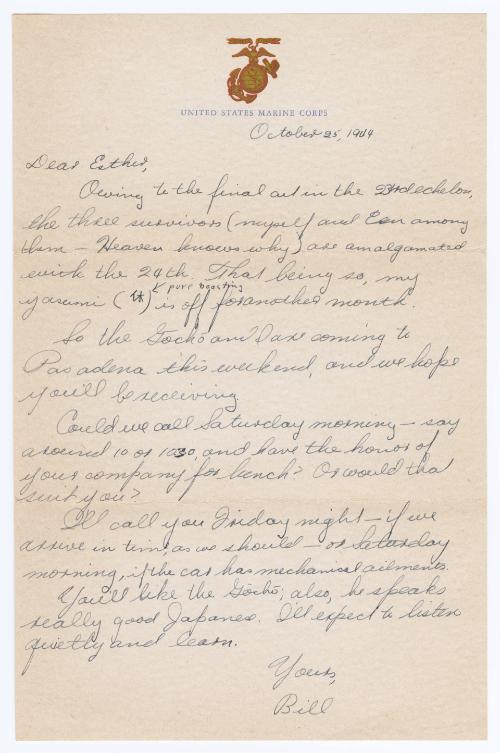 UNITED STATES MARINE CORPS
October 25, 1944
Dear Esther,
Owing to the final act in the 23rd echelon,
the three survivors (myself and Ern among
them – Heaven knows why) are amalgamated
with the 24th. That being so, my
pure boasting
yasumi (休) is off for another month.
So the Gochō and I are coming to
Pasadena this weekend, and we hope
you'll be receiving
Could we call Saturday morning – say
around 10 or 1030, and have the honor of
your company for lunch? Or would that
suit you?
I'll call you Friday night – if we
arrive in time, as we should – or Saturday
morning, if the car has mechanical ailments.
You'll like the Gōchō; also, he speaks
really good Japanese. I'll expect to listen
quietly and learn.
Yours,
Bill